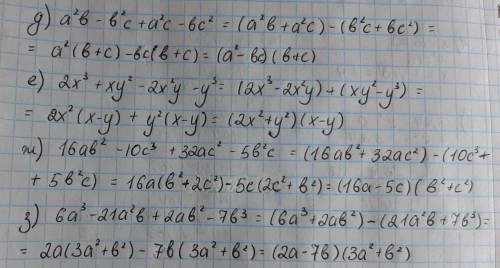 д) a²в - в²c + a²c - вc² = (a²в + a²c) - (в²c + вc²) =
= a²(в+c) - вc(в+c) = (a² - вc)(в+c)
е) 2x³ + xy² - 2x²y - y³ = (2x³ - 2x²y) + (xy² - y³) =
= 2x²(x-y) + y²(x-y) = (2x² + y²)(x-y)
ж) 16aв² - 10c³ + 32ac² - 5в²c = (16aв² + 32ac²) - (10c³ +
+ 5в²c) = 16a(в² + 2c²) - 5c(2c² + в²) = (16a - 5c)(в² + c²)
з) 6a³ - 21a²в + 2aв² - 7в³ = (6a³ + 2aв²) - (21a²в + 7в³) =
= 2a(3a² + в²) - 7в(3a² + в²) = (2a - 7в)(3a² + в²)